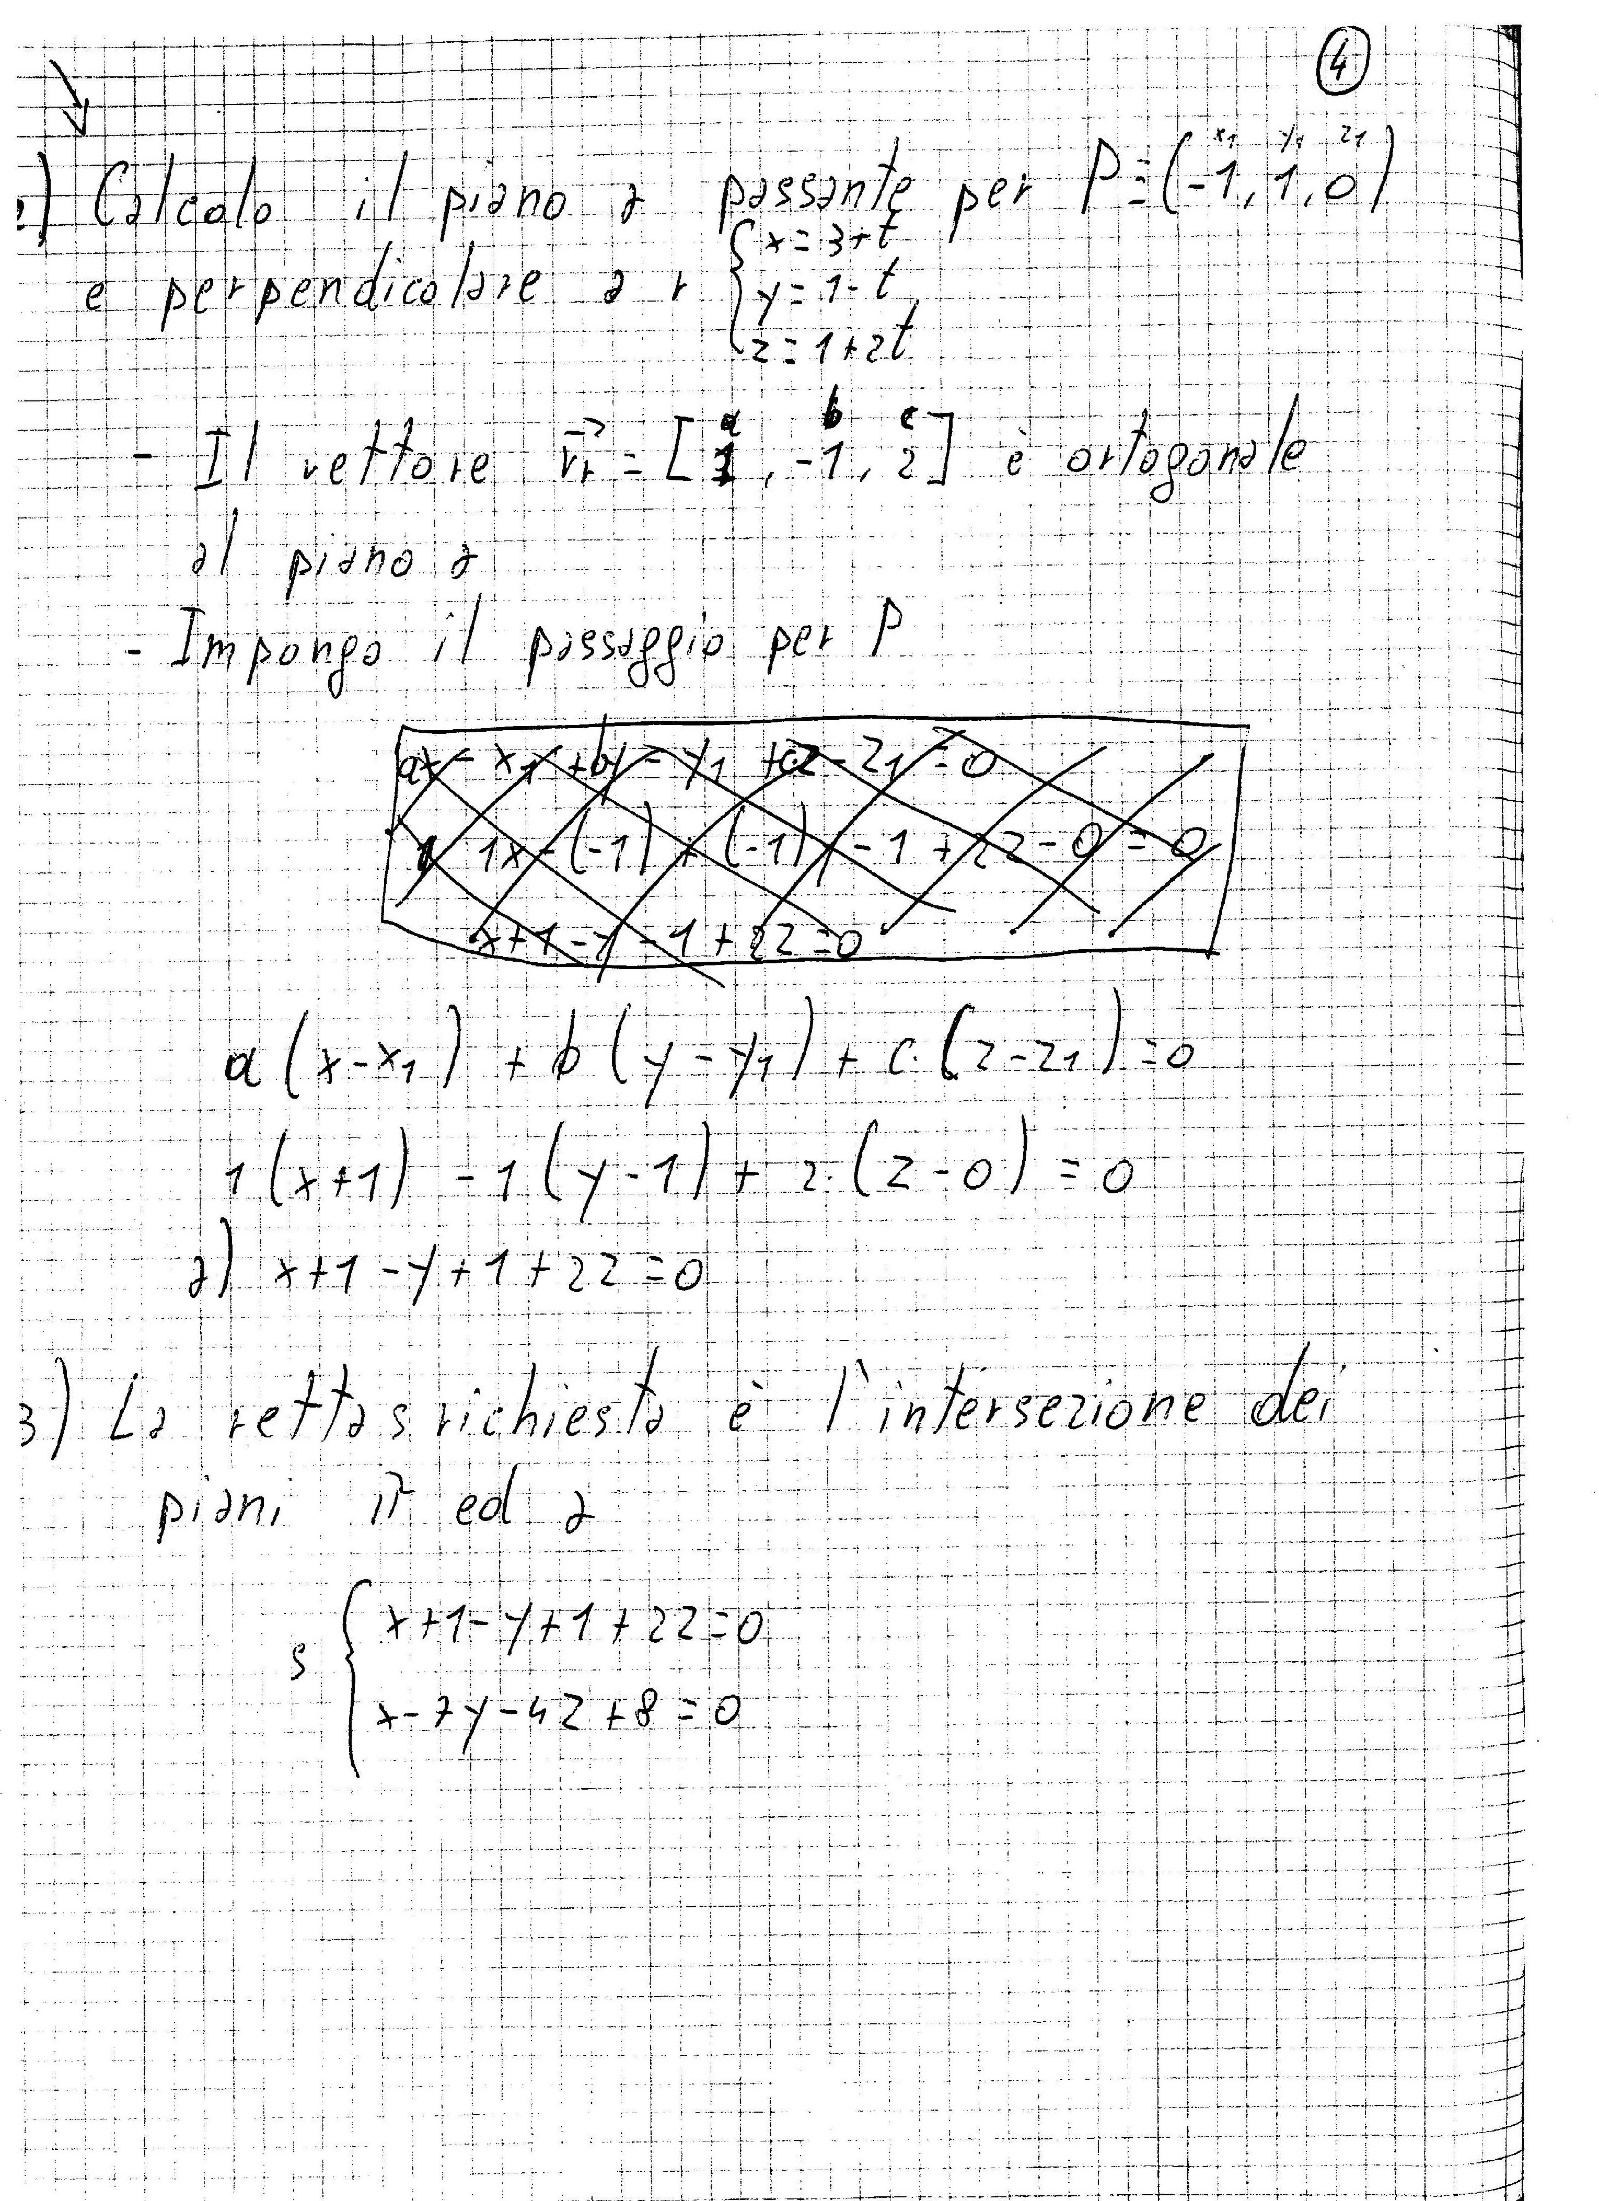 4
x1 y1 z1
2) Calcolo il piano a passante per P≡(-1, 1, 0)
e perpendicolare a r { x = 3+t
y = 1-t
z = 1+2t
a b c
- Il vettore vr = [1, -1, 2] è ortogonale
al piano a
- Impongo il passaggio per P
ax - x1 + by - y1 + cz - z1 = 0
1x - (-1) + (-1)y - 1 + 2z - 0 = 0
x+1-y-1+2z=0
a(x-x1) + b(y-y1) + c·(z-z1)=0
1(x+1) -1(y-1) + 2·(z-0) = 0
a) x+1-y+1+2z=0
3) La retta s richiesta è l'intersezione dei
piani π ed a
s { x+1-y+1+2z=0
x-7y-4z+8=0